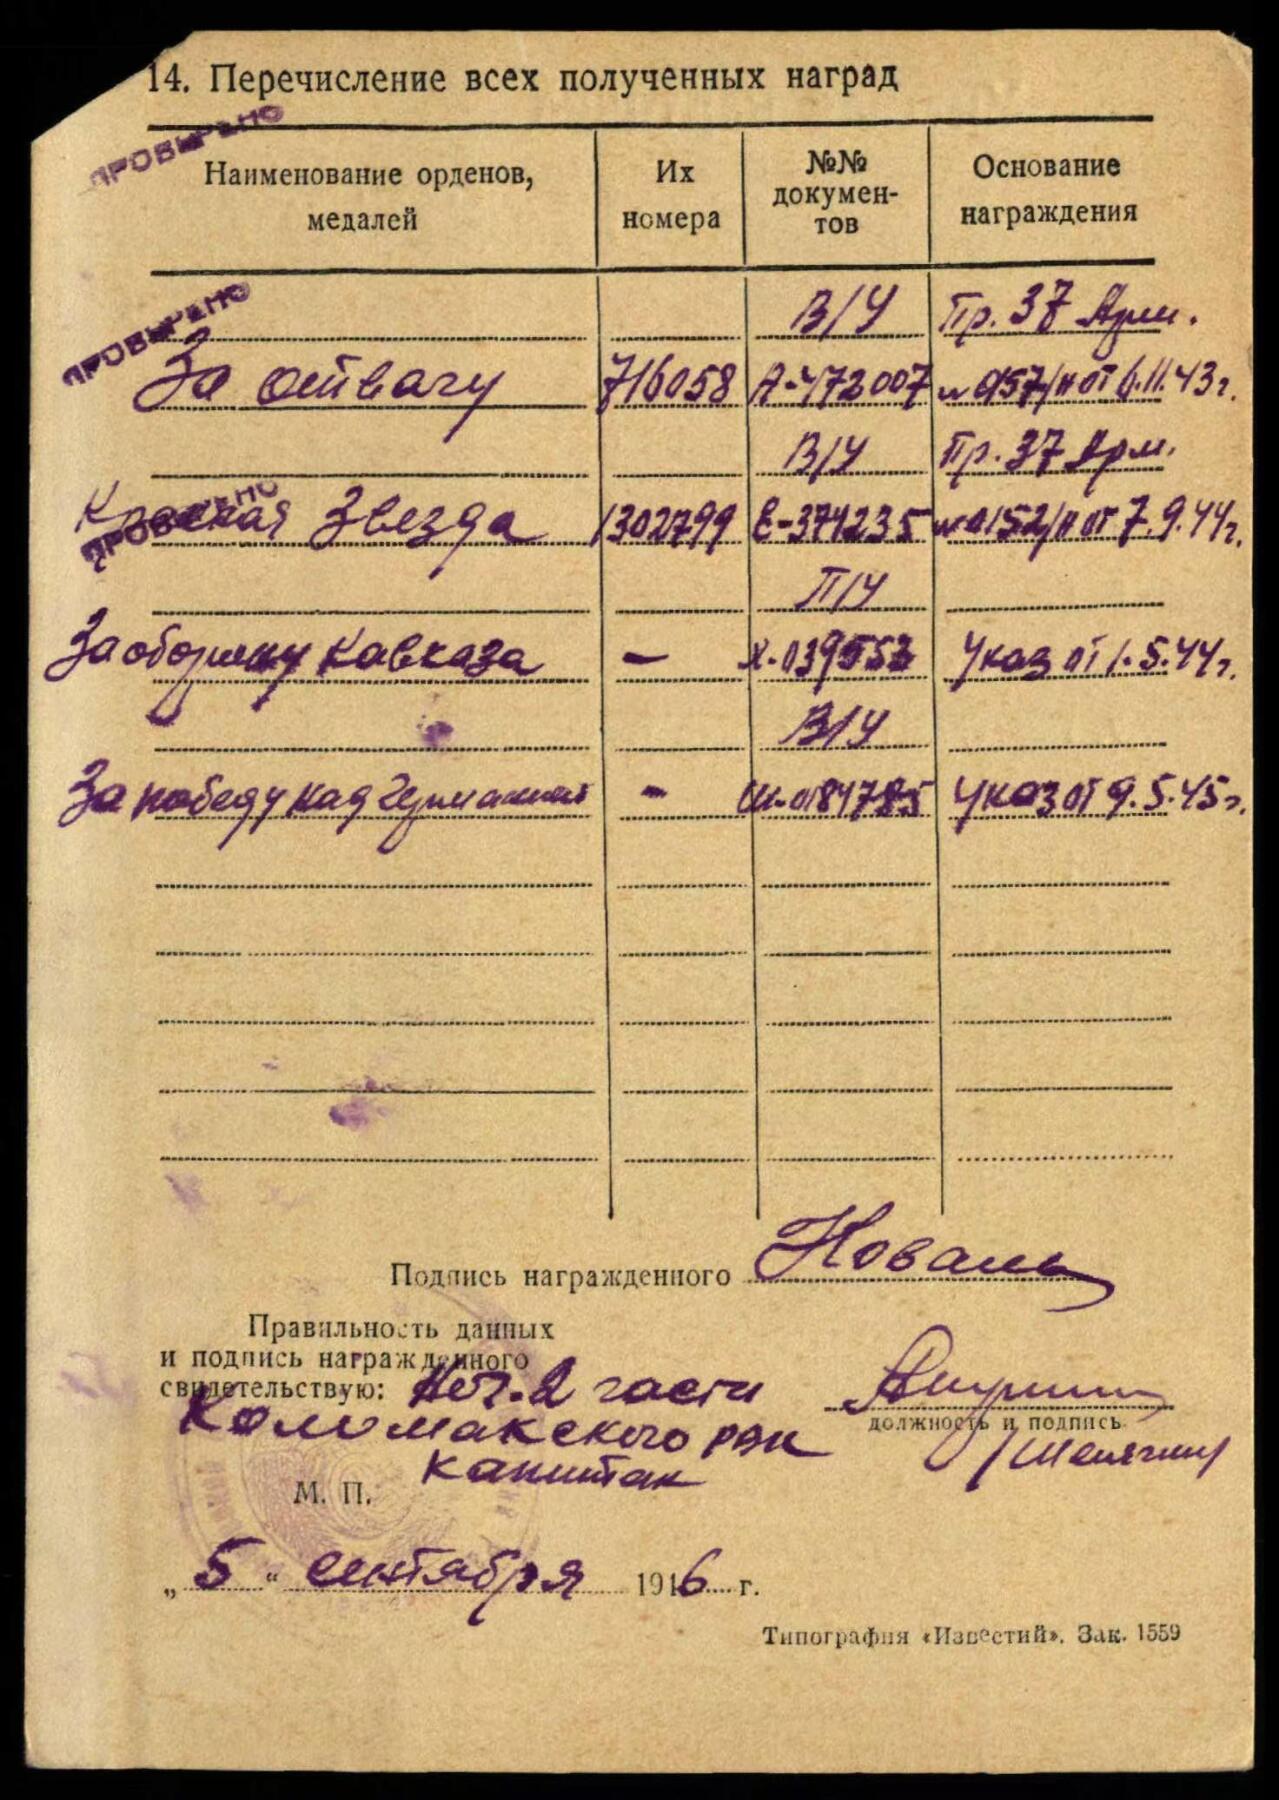 14. Перечисление всех полученных наград
ПРОВЕРЕНО
Наименование орденов, медалей
Их номера
№№ докумен-тов
Основание награждения
ПРОВЕРЕНО
В/У Пр. 37 Арм.
За отвагу 716058 А-472007 №0157/н от 6.11.43г.
В/У Пр. 37 Арм.
ПРОВЕРЕНО
Красная Звезда 1302799 Е-374235 №0152/н от 7.9.44г.
П/У
За оборону Кавказа — Х-039553 Указ от 1.5.44г.
В/У
За победу над Германией — Ш-0184785 Указ от 9.5.45г.
Подпись награжденного Коваль
Правильность данных
и подпись награжденного
свидетельствую: Нач. 2 части
Коломакского рвк
должность и подпись
капитан
М. П.
„5“ сентября 1946 г.
Типография «Известий». Зак. 1559